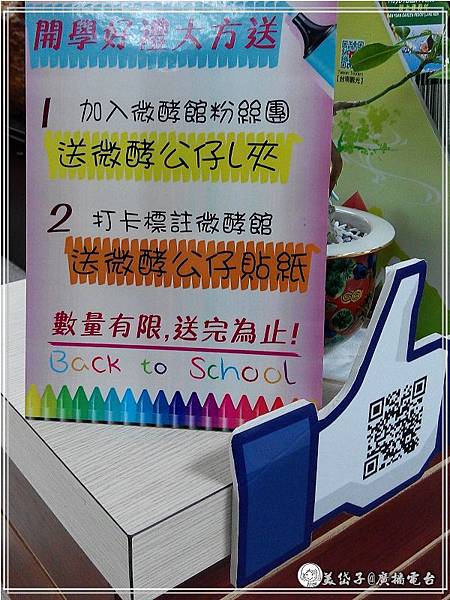 開學好禮大方送
1 加入微酵館粉絲團
送微酵公仔L夾
2 打卡標註微酵館
送微酵公仔貼紙
數量有限,送完為止!
Back to School
美岱子@廣播電台